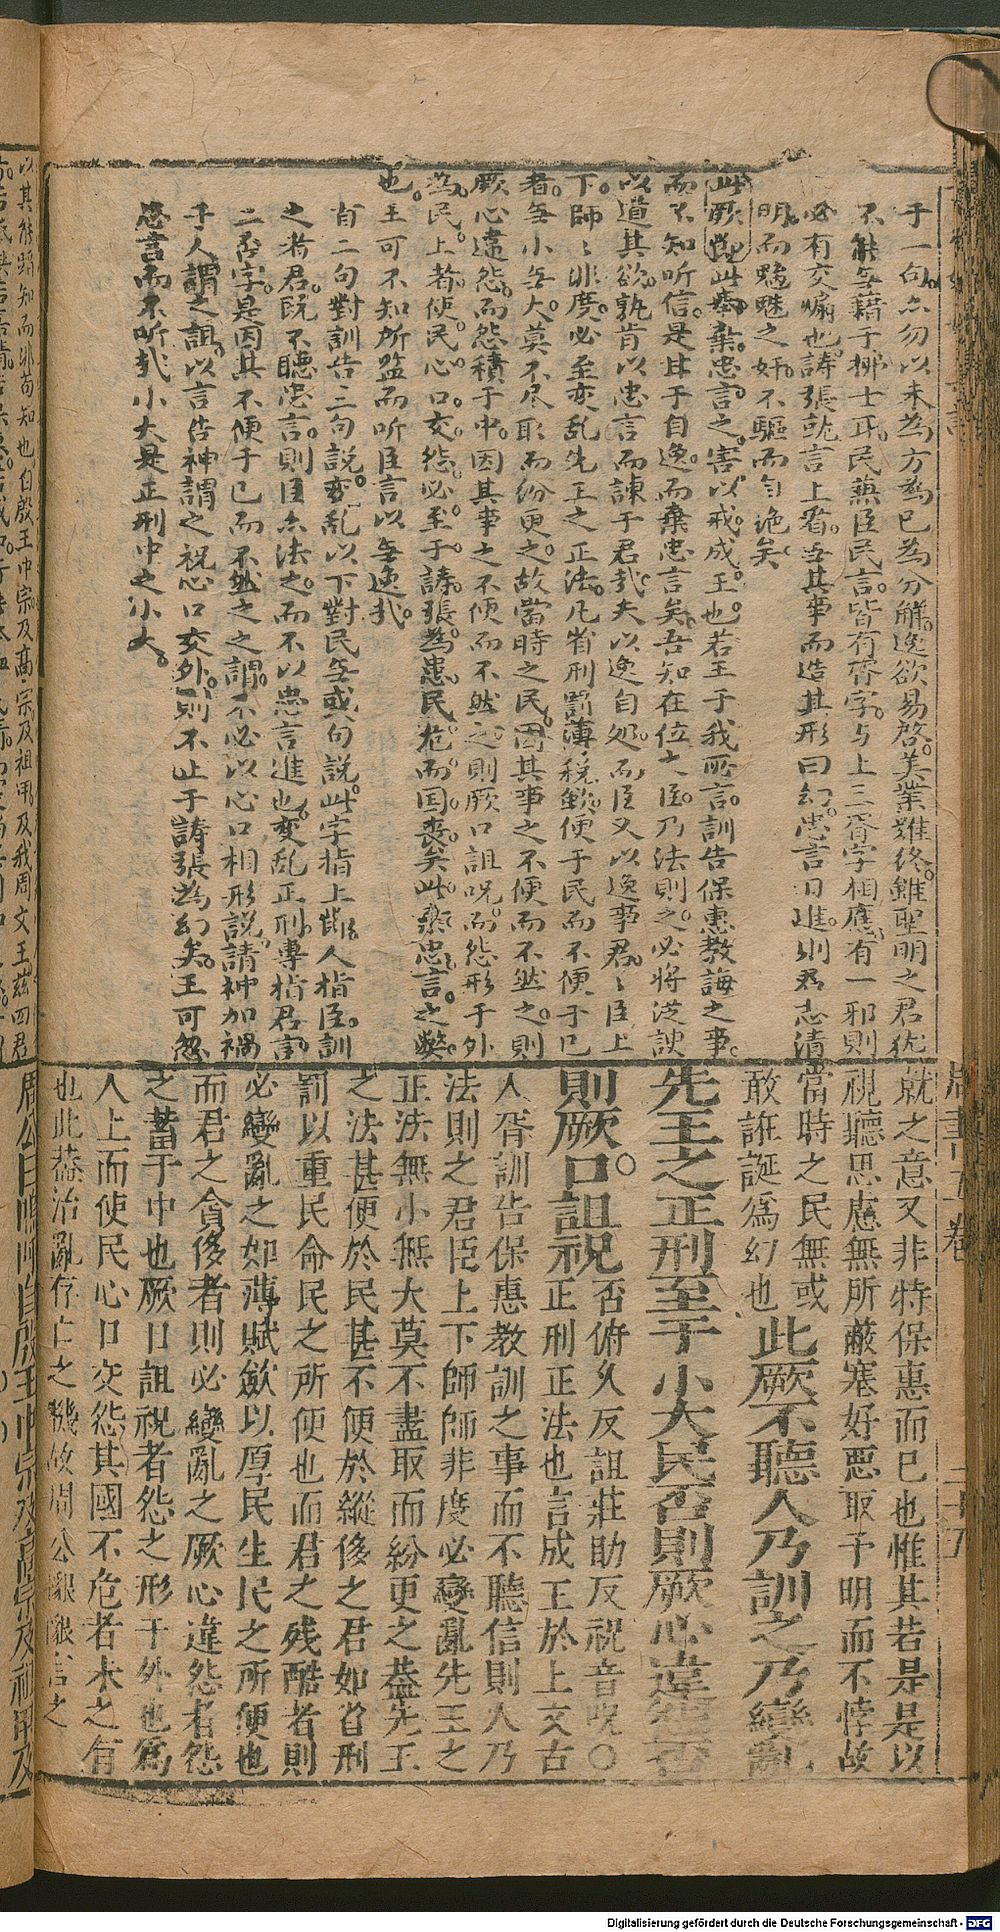 于一句亦勿以未為方為已為分觧逸欲易啓美業難終雖聖明之君
不能無藉于挪士耳民無臣民言皆有胥字与上三胥字相應有一邪則
必有交煽也譸張就言上看無其事而造其形曰幻忠言日進則君志清
明而魑魅之奸不驅而自詭矣
此厥節此棄忠言之害以戒成王也若王于我所言訓告保惠教誨之事
而不知听信是甘于自逸而棄忠言矣吾知在位大臣乃法則之必將諛
以道其欲孰肯以忠言而諫于君哉夫以逸自処而臣又以逸事君臣上
下師〻非度必至变乱先王之正法凡省刑罰薄税斂便于民而不便于已
者無小無大莫不尽取而紛更之故當時之民因其事之不便而不然之則
厥心違怨而怨積于中因其事之不便而不然之則厥口詛呪而怨形于外
為民上者使民心口交怨必至于譸張為患民危而国丧矣此棄忠言之弊
也王可不知所监而听臣言以無逸哉
首二句對訓告三句說变乱以下對民無或句說此字指上節人指臣訓
之者君既不聽忠言則臣亦法之而不以忠言進也变乱正刑專指君言
二否字是因其不便于已而不然之之謂不必以心口相形說請神加禍
于人謂之詛以言告神謂之祝心口交外則不止于譸張為幻矣王可忽
忠言而不听哉小大是正刑中之小大
就之意又非特保惠而已也惟其若是是以
視聽思慮無所蔽塞好惡取予明而不悖故
當時之民無或
敢誑誕爲幻也此厥不聽人乃訓之乃變亂
先王之正刑至于小大民否則厥心違怨否
則厥口詛祝否俯久反詛莊助反祝音呪〇
正刑正法也言成王於上文古
人胥訓告保惠教訓之事而不聽信則人乃
法則之君臣上下師師非度必變亂先王之
正法無小無大莫不盡取而紛更之葢先王
之法甚便於民甚不便於縱侈之君如省刑
罰以重民命民之所便也而君之残酷者則
必變亂之如薄賦斂以厚民生民之所便也
而君之貪侈者則必變亂之厥心違怨者怨
之蓄于中也厥口詛祝者怨之形于外也爲
人上而使民心口交怨其國不危者未之有
也此葢治亂存亡之機故周公懇懇言之
周書 五卷 二十五
以其能蹈知而非苟知也自殷王中宗及高宗及祖甲及我周文王兹四君
周公曰嗚呼自殷王中宗及高宗及祖甲及
Digitalisierung gefördert durch die Deutsche Forschungsgemeinschaft - DFG